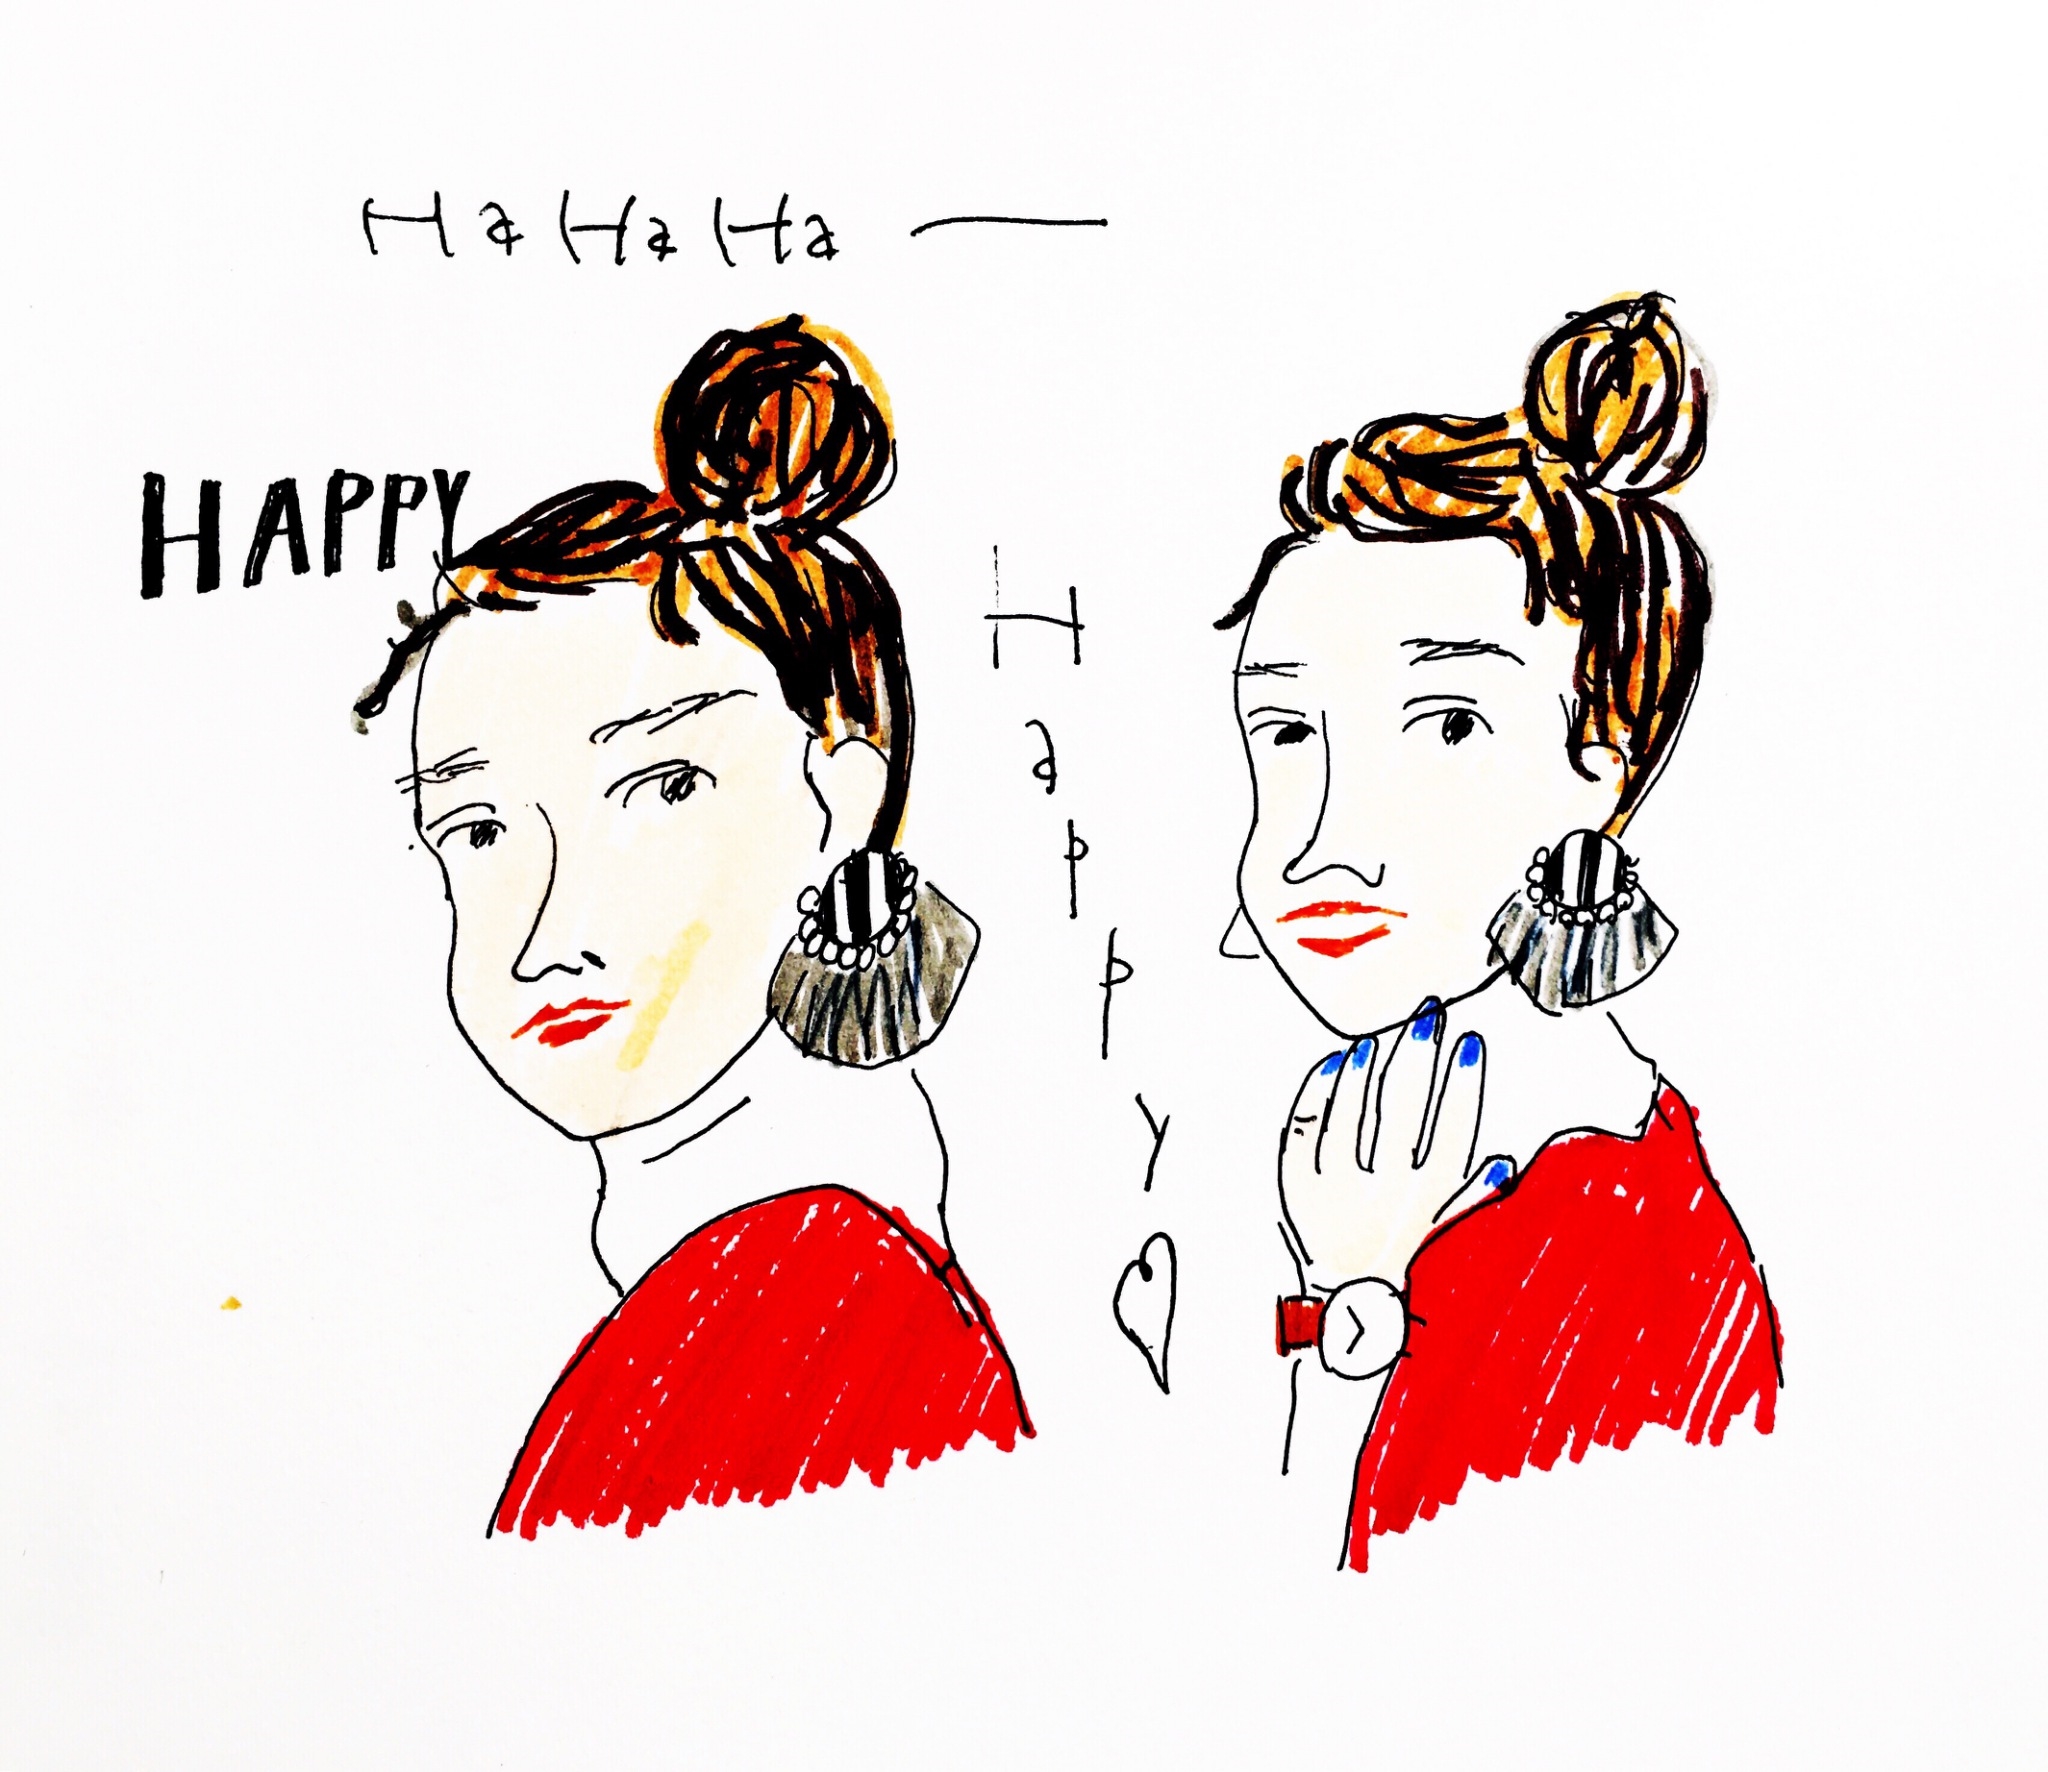 HaHaHa —
HAPPY
Happy ♡